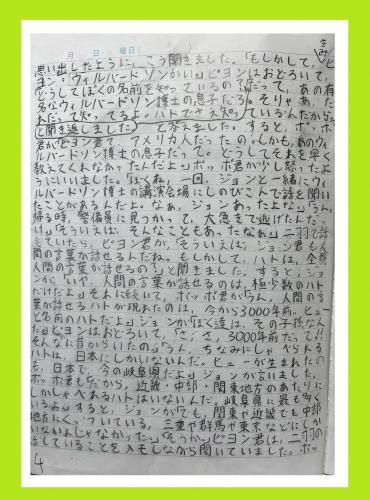 月 日 曜日(
思い出したように、こう聞きました。「もしかして、きみ、ピ
ヨン・ウィルバードソンかい。」ピヨンはおどろいて、
どうしてぼくの名前を知っているの」「だって、あの有
名なウィルバードソン博士の息子だろ。そりゃあ、だ
れだって知ってるよ。ハトでさえ知っているんだから。」
と聞き返しました。 と答えました。すると、ポッポ
君が「ピヨン君て、アメリカ人だったの。しかも、あのウィ
ルバードソン博士の息子だって。どうしてそれを早く
教えてくれなかったんだよ。」ポッポ君が少し怒ったよ
うにいいました。「ぼくね、一回、ジョンと一緒にウィ
ルバードソン博士の講演会場にしのびこんで話を聞い
たことがあるんだよ。なあ、ジョンあったよな。」「うん。
帰る時、警備員に見つかって、大急ぎで逃げたんだっ
け。」「そういえば、そんなこともあったなぁ。」二羽で話
していたら、ピヨン君が、「そういえば、ジョン君も人
間の言葉が話せるんだね。もしかして、ハトは、全部
人間の言葉が話せるの。」と聞きました。すると、ジョ
ンが、「いや、人間の言葉が話せるのは、極少数のハト
だけだよ。」それに続いて、ポッポ君が「うん、人間の言
葉が話せるハトが現れたのは、今から3000年前。ヒュー
と名前のハトだよ。」ジョンが「ぼく達は、その子孫なん
だ。」ピヨンはおどろいて、「さ、さ、3000年前だって!!
そんなに昔からいたの。」「うん。ちなみにしゃべられる
ハトは、日本にしかいないんだ。ヒューが生まれたの
も、日本で、今の岐阜県だよ。」ジョンが言いました。
ポッポ君も「だから、近畿・中部・関東地方のあたりに
しかしゃべれるハトはいないんだ。岐阜県に最も多く
いるよ。」すると、ジョンが「でも、関東や近畿でも中部
地方にくっついている、三重や群馬や東京などにしか
いないんじゃなかった。」「そうか。」ピヨン君は、二羽の
話していることをメモしながら聞いていました。ポッ
4